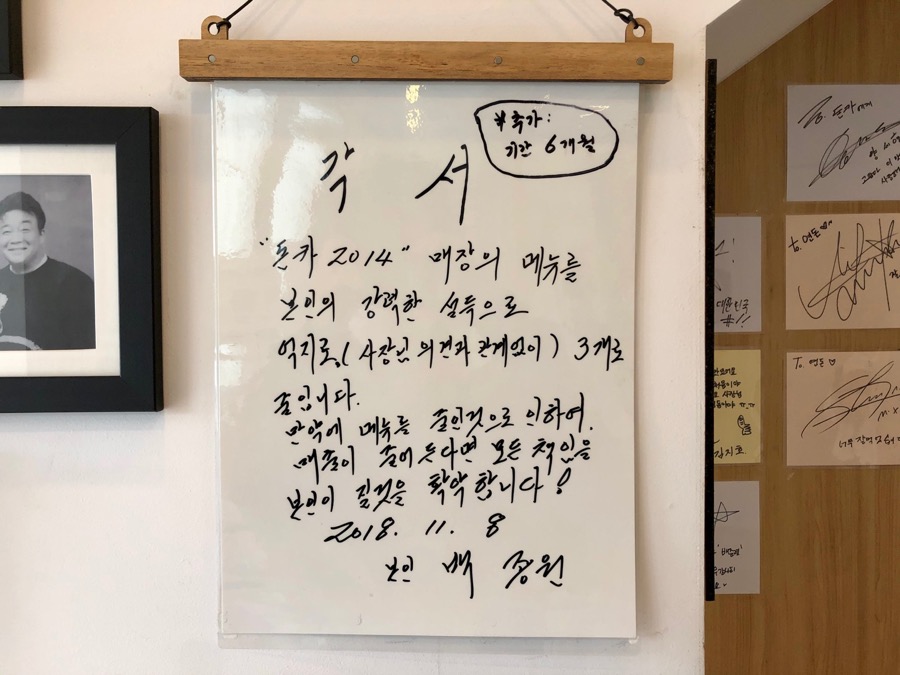 각 서
*추가:
기간 6개월
"돈카 2014" 매장의 메뉴를
본인의 강력한 설득으로
억지로, (사장님 의견과 관계없이) 3개로
줄입니다.
만약에 메뉴를 줄인것으로 인하여.
매출이 줄어 든다면 모든 책임을
본인이 질것을 확약합니다!
2018. 11. 8
본인 백 종원
To. 연돈
대한민국
To. 연돈♡
김지호